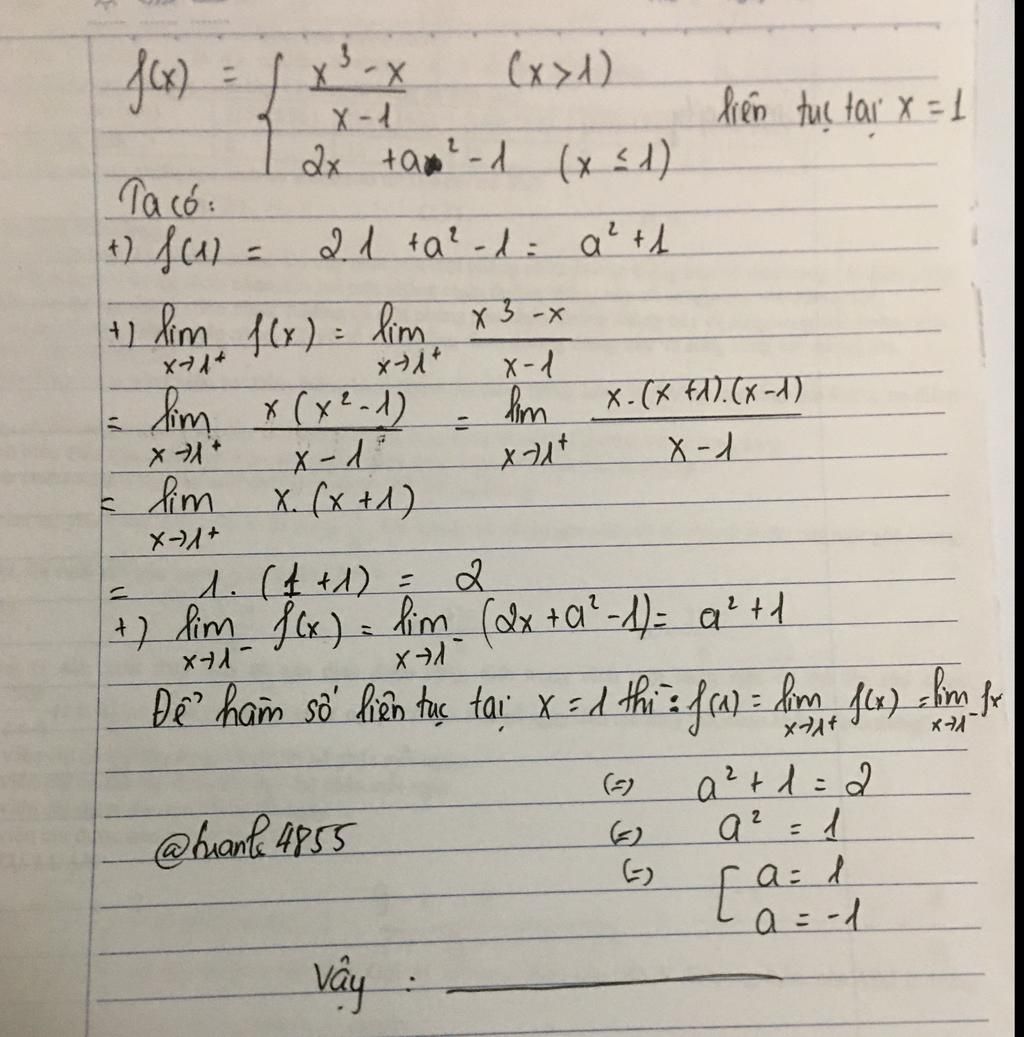 f(x) = { x³ - x / x - 1 (x > 1)
2x + a² - 1 (x ≤ 1) liên tục tại x = 1
Ta có:
+) f(1) = 2.1 + a² - 1 = a² + 1
+) lim x→1⁺ f(x) = lim x→1⁺ x³ - x / x - 1
= lim x→1⁺ x(x² - 1) / x - 1 = lim x→1⁺ x.(x + 1).(x - 1) / x - 1
= lim x→1⁺ x.(x + 1)
= 1.(1 + 1) = 2
+) lim x→1⁻ f(x) = lim x→1⁻ (2x + a² - 1) = a² + 1
Để hàm số liên tục tại x = 1 thì: f(1) = lim x→1⁺ f(x) = lim x→1⁻ fx
(=) a² + 1 = 2
(=) a² = 1
(=) [ a = 1
a = -1
Vậy :